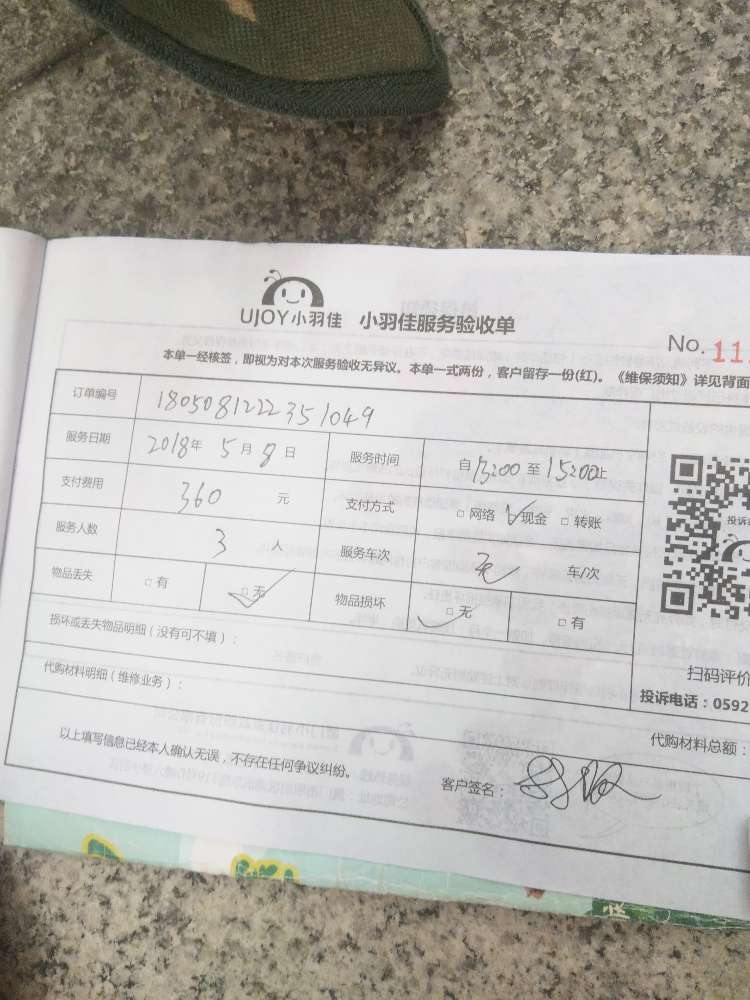 UJOY小羽佳 小羽佳服务验收单
No. 11
本单一经核签，即视为对本次服务验收无异议。本单一式两份，客户留存一份(红)。《维保须知》详见背面
订单编号 180508122235 1049
服务日期 2018年 5月 8日 服务时间 自13:00至15:00止
支付费用 360 元 支付方式 □网络 ☑现金 □转账
服务人数 3 人 服务车次 无 车/次
物品丢失 □有 ☑无 物品损坏 ☑无 □有
损坏或丢失物品明细（没有可不填）：
扫码评价
代购材料明细（维修业务）：
投诉电话：0592
代购材料总额：
以上填写信息已经本人确认无误，不存在任何争议纠纷。
客户签名：